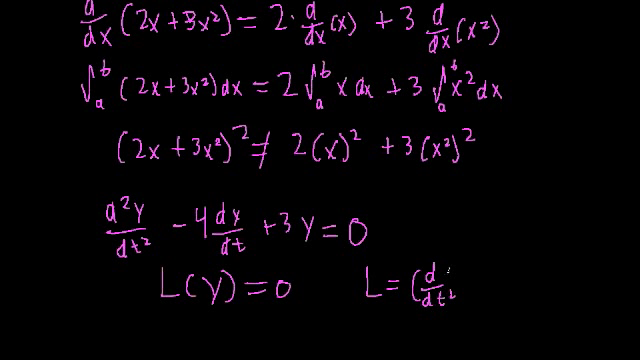 d/dx (2x + 3x²) = 2 · d/dx (x) + 3 d/dx (x²)
∫ₐᵇ (2x + 3x²) dx = 2 ∫ₐᵇ x dx + 3 ∫ₐᵇ x² dx
(2x + 3x²)² ≠ 2(x)² + 3(x²)²
d²y/dt² − 4 dy/dt + 3y = 0
L(y) = 0    L = (d/dt²